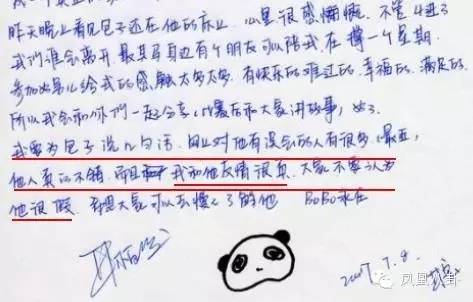 昨天晚上看见包子还在他的床上 心里很感慨. 不管4进3
我们谁会离开. 最其马身边有个朋友可以陪我在撑一个星期.
参加 男儿给我的感触太多太多. 有快乐的难过的. 幸福的. 满足的.
所以我会和你们一起分享. 以后在和大家讲故事,
我要为包子说几句话. 网上对他有误会的人有很多.
他人真的不错. 而且 我和他友情很真. 大家不要认为
他很假. 希望大家可以去慢慢了解他 BOBO永在
2007.7.8.
凤凰八卦